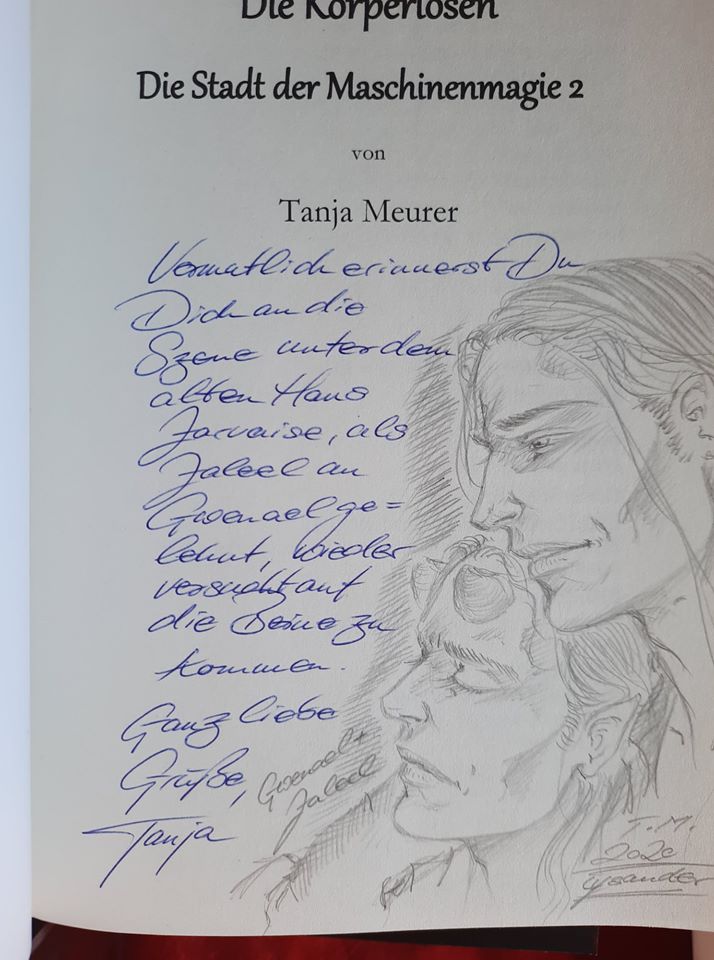 Die Körperlosen
Die Stadt der Maschinenmagie 2
von
Tanja Meurer
Vermutlich erinnerst Du
Dich an die
Szene unter dem
alten Haus
Jarvaise, als
Jaleel an
Gwenael ge=
lehnt, wieder
versucht auf
die Beine zu
kommen.
Ganz liebe
Grüße,
Tanja
Gwenael +
Jaleel
T.M.
2020